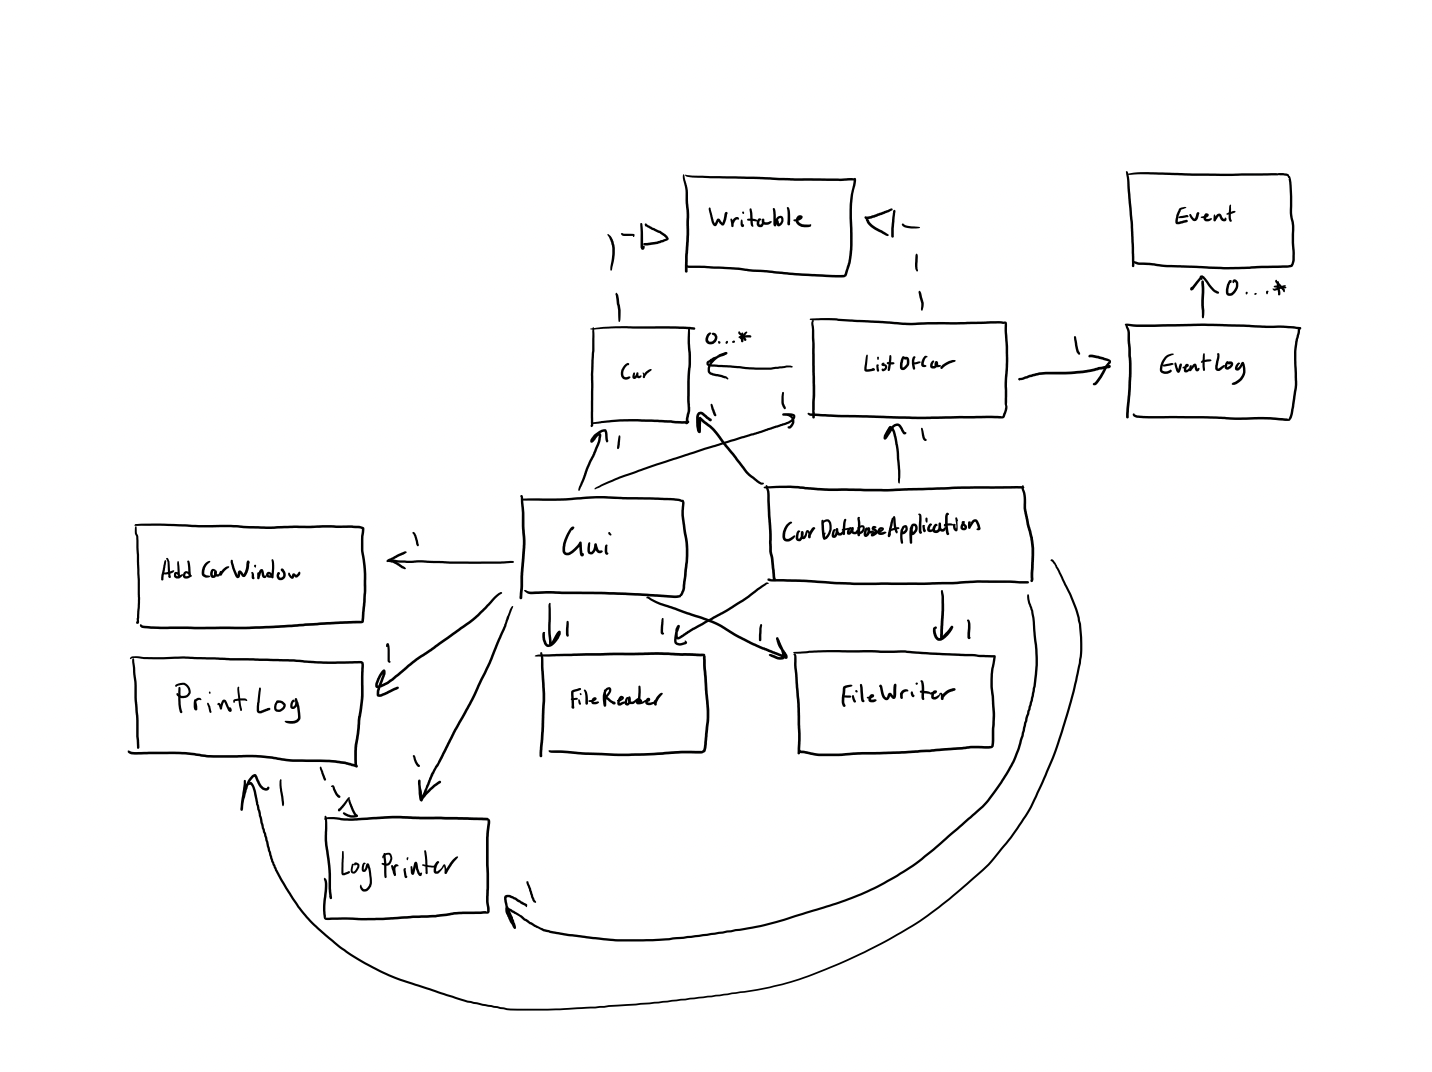 Writable
Event
0...*
0...*
Car
ListOfCar
1
EventLog
1
1
1
1
Gui
CarDatabaseApplication
1
AddCarWindow
1
1
1
1
1
PrintLog
FileReader
FileWriter
1
1
LogPrinter
1